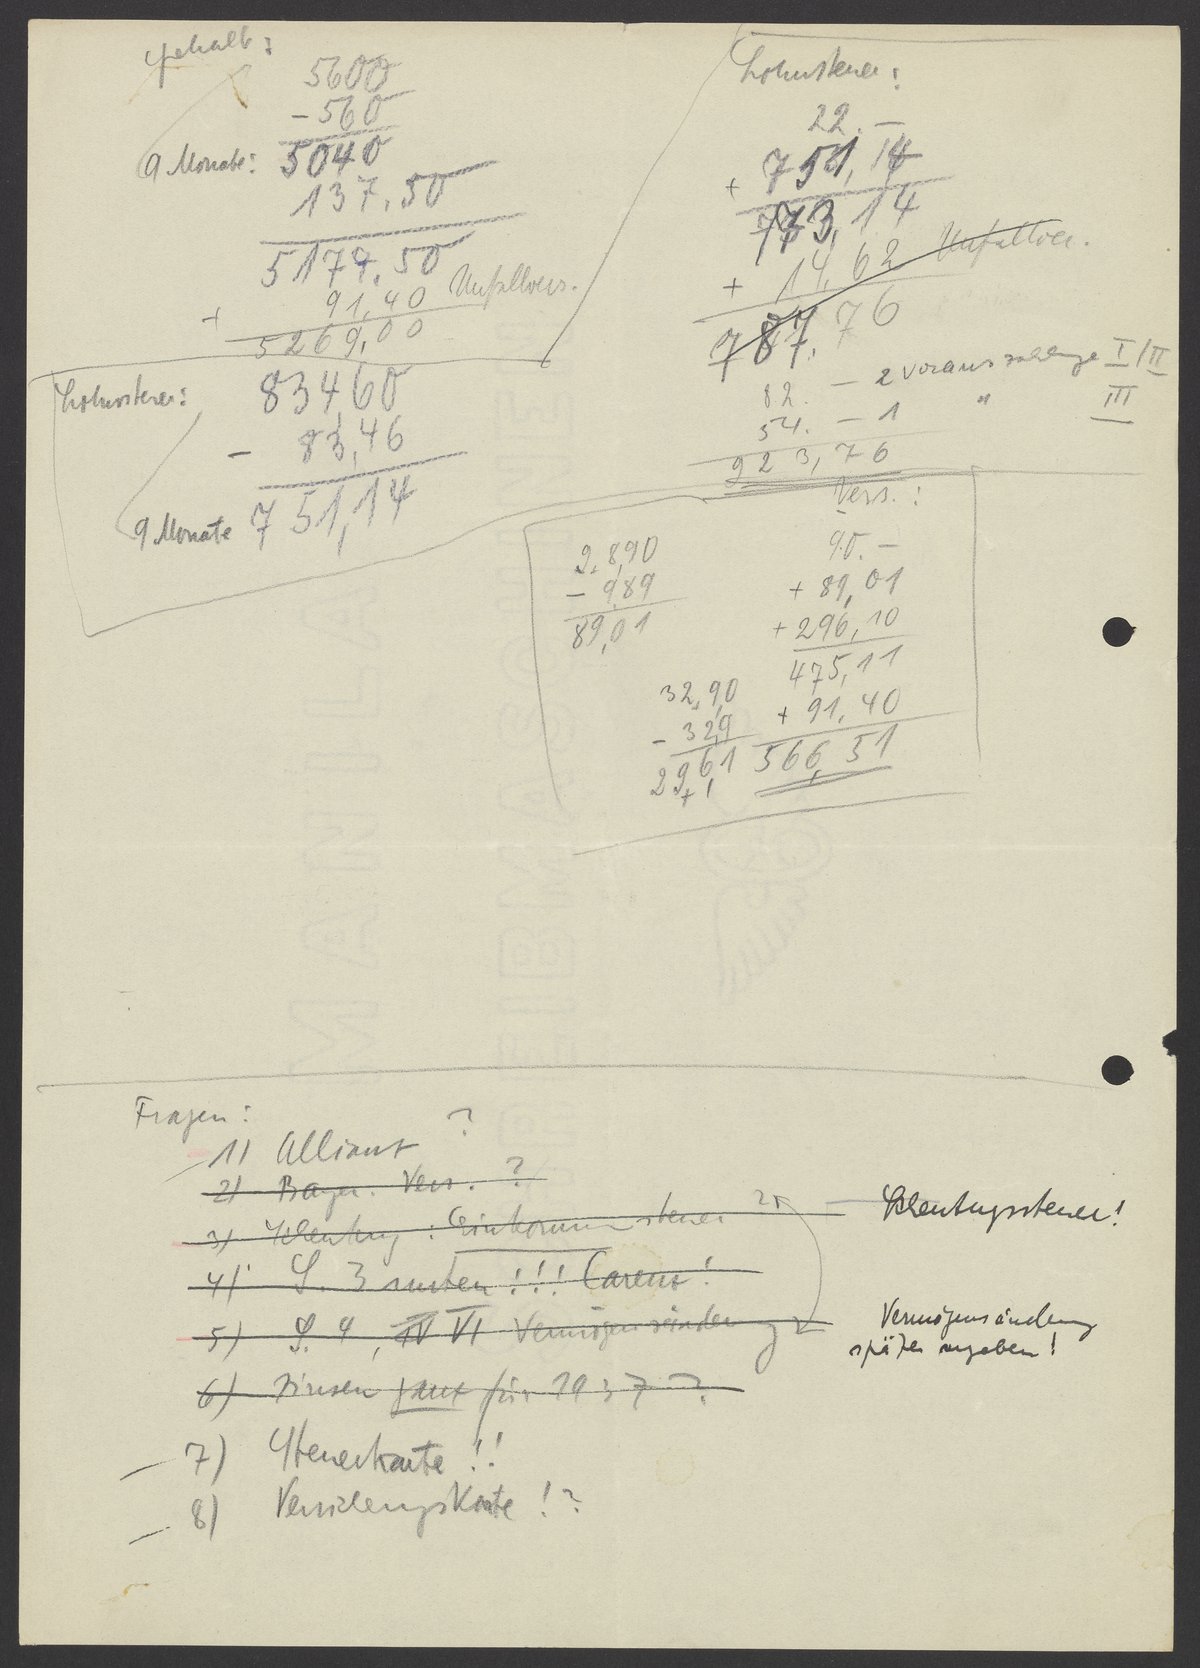 Gehalt:
5600
- 560
9 Monate: 5040
137.50
5177.50
+ 91,40 Unfallvers.
5269,00
Lohnsteuer:
83460
- 83,46
9 Monate 751,14
Lohnsteuer:
22.-
+ 751,14
773,14
+ 14,62 Unfallver.
787,76
82. - 2 Vorauszahlunge I/II
54. - 1 " III
923,76
Vers.:
9.8,90
- 9,89
89,01
90.-
+ 89,01
+ 296,10
475,11
+ 91,40
566,51
32,9,0
- 32,9
296,1
Fragen:
1) Allianz ?
2) Bayer. Vers. ?
3) Schenkung: Einkommensteuer ?
Schenkungssteuer!
4) S. 3 unten!!! Carens!
5) S. 4, IV VI Vermögensänderung
Vermögensänderung
später angeben!
6) Zinsen ganz für 1937 ?
7) Steuerkarte!!
8) Versicherungskarte!?